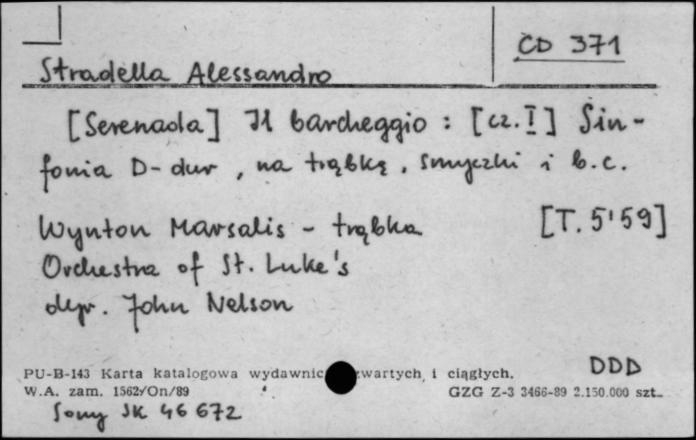 CD 371
Stradella Alessandro
[Serenada] Il barcheggio : [cz. I] Sin-
fonia D-dur, na trąbkę, smyczki i b.c.
Wynton Marsalis - trąbka [T. 5'59]
Orchestra of St. Luke's
dyr. John Nelson
DDD
PU-B-143 Karta katalogowa wydawnic wartych i ciągłych.
W.A. zam. 1562/On/89 GZG Z-3 3466-89 2.150.000 szt.
Sony SK 46 672